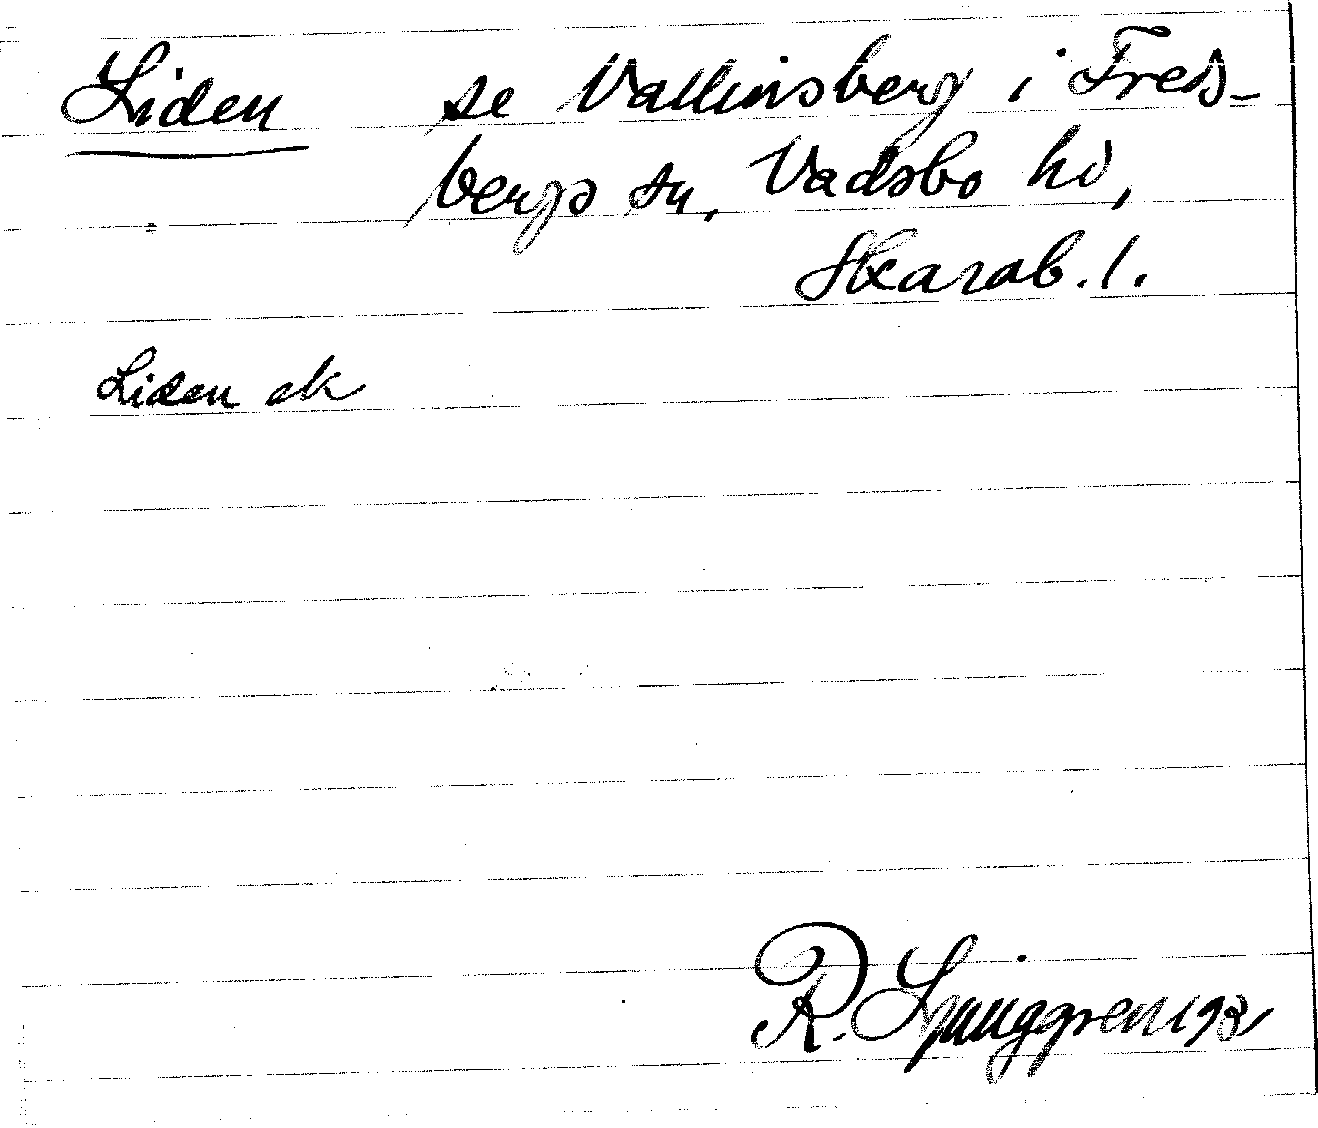 Liden se Vallinsberg i Freds-
bergs sn, Vadsbo hd,
Skarab. l.
Liden ek
R. Ljunggren